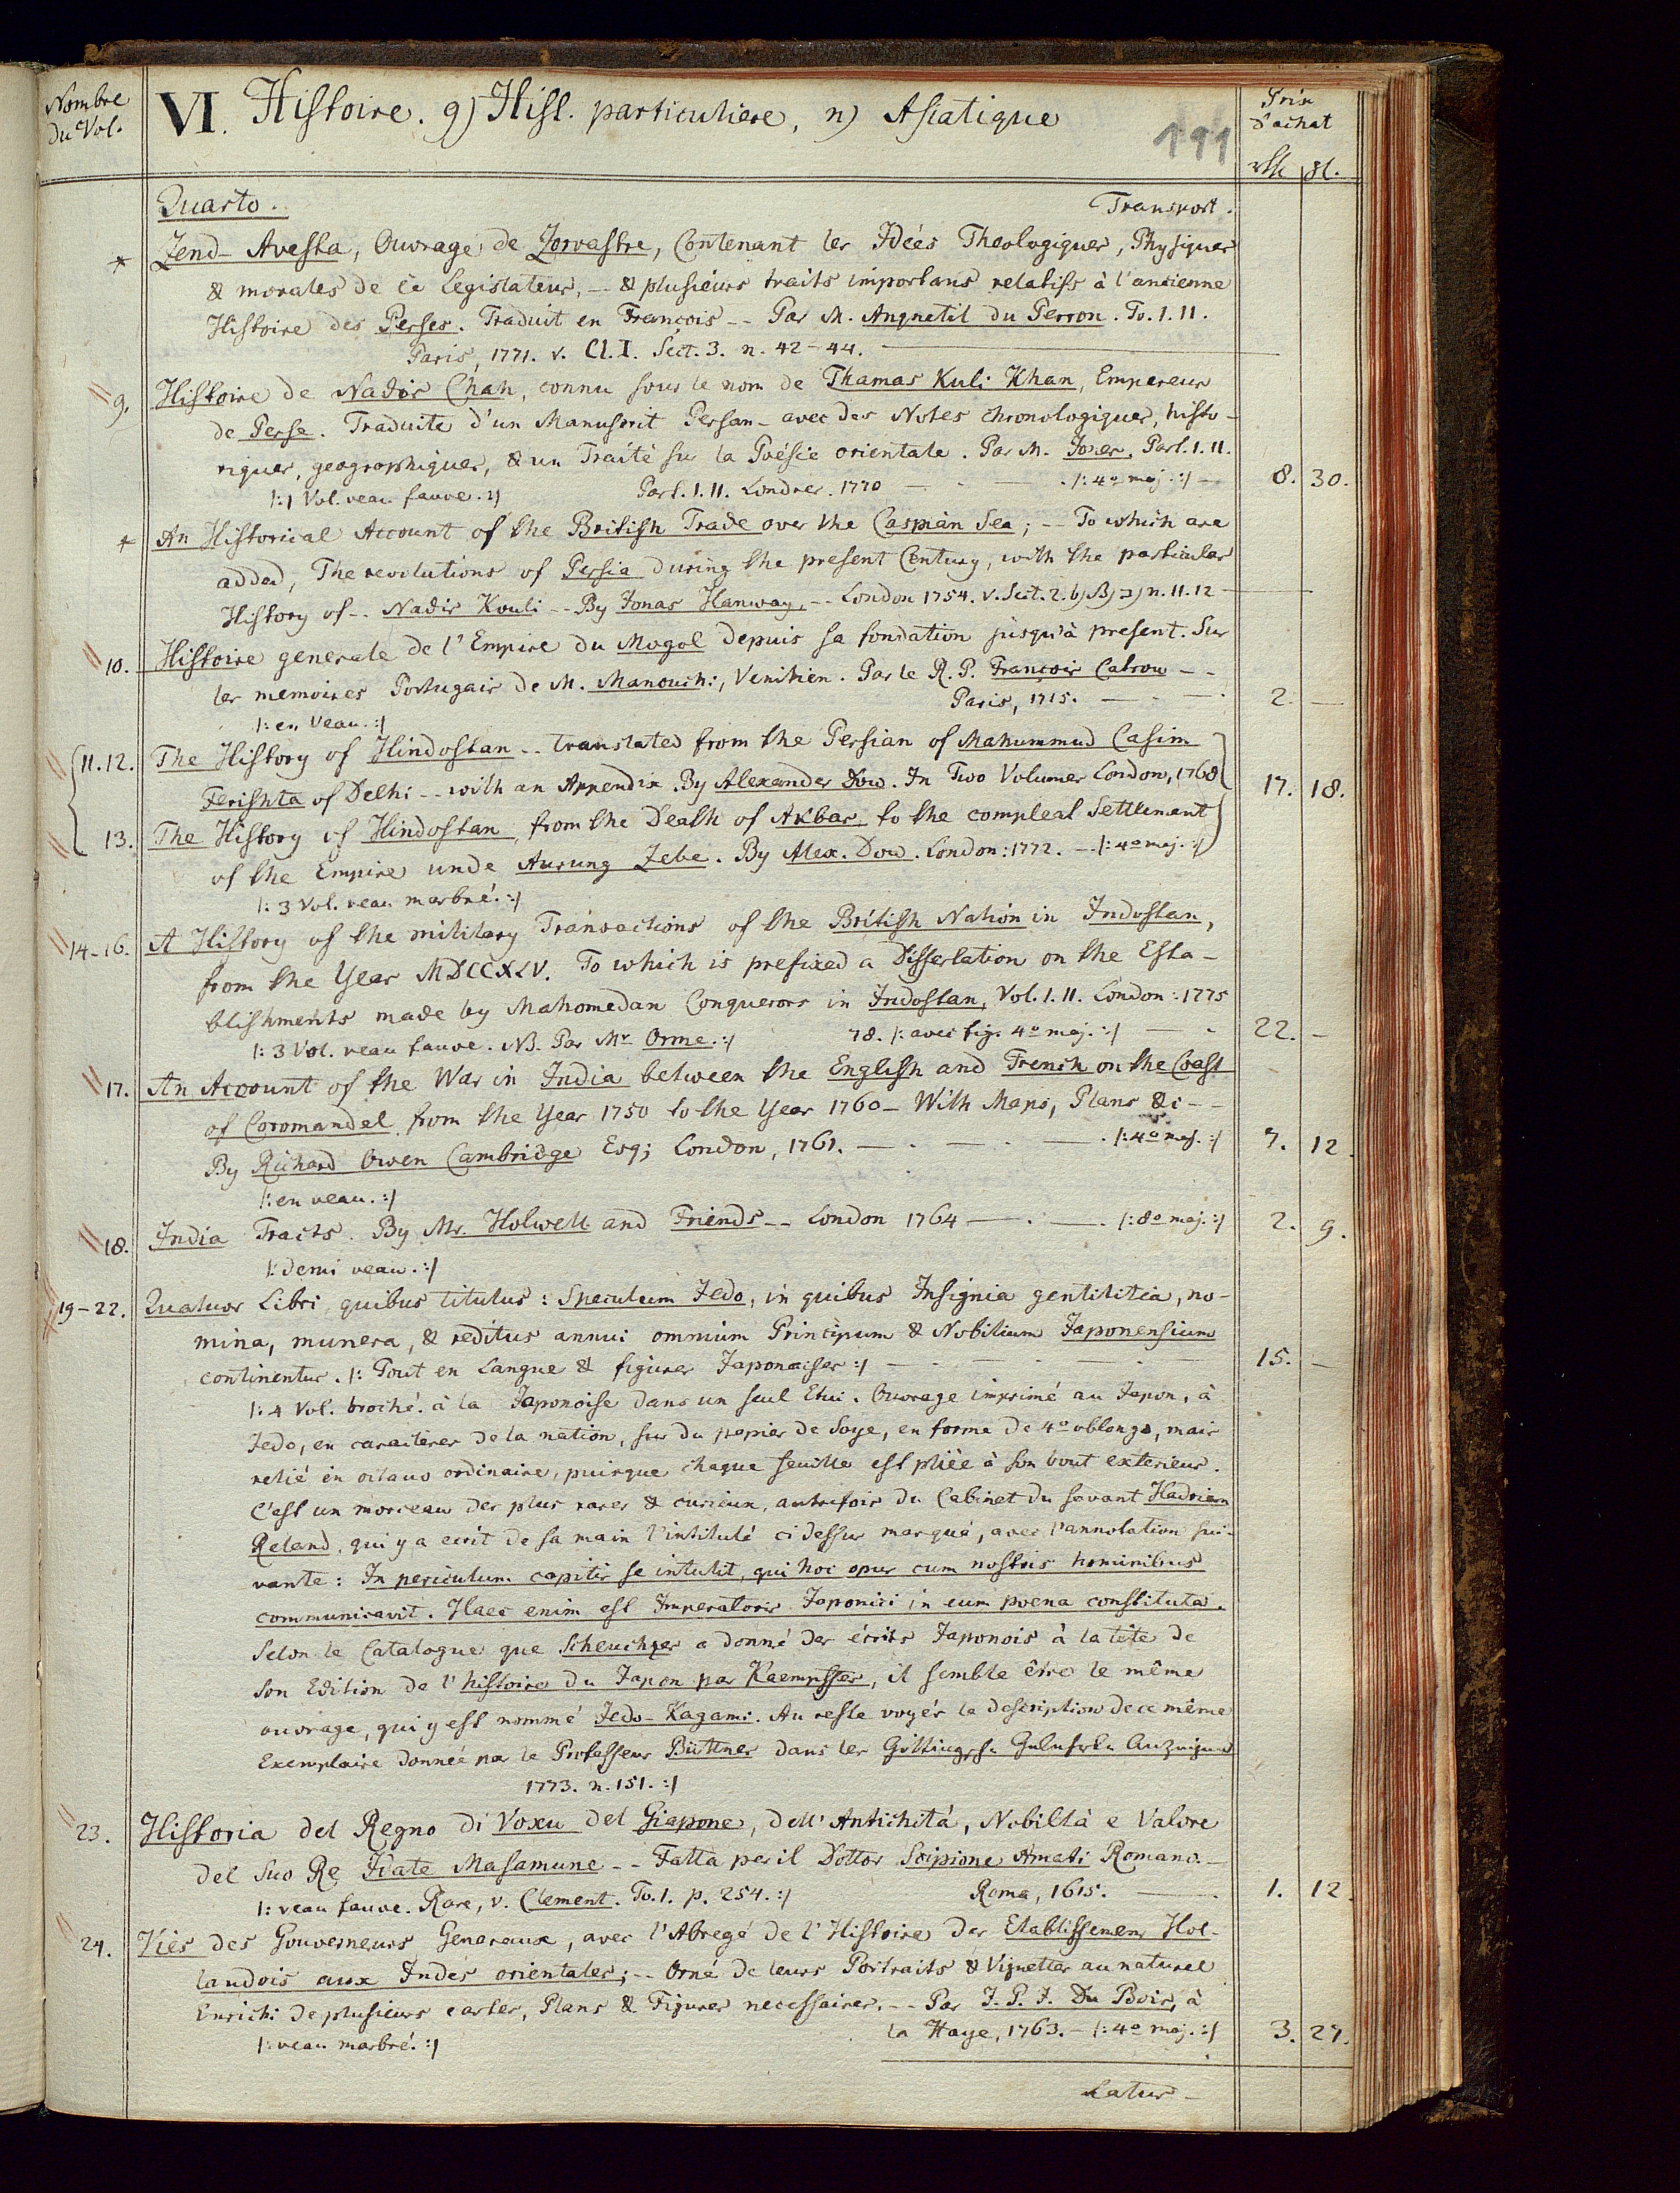 Nombre
du Vol.
VI. Histoire. g) Hist. particuliere, n) Asiatique
191
Prix
d'achat
Quarto. Transport.
* Zend-Avesta, Ouvrage de Zoroastre, Contenant les Idées Theologiques, Physiques
& morales de ce Legislateur, -- & plusieurs traits importans relatifs à l'ancienne
Histoire des Perses. Traduit en François -- Par M. Anquetil du Perron. To. I. II.
Paris, 1771. v. Cl. I. Sect. 3. n. 42-44.
9. Histoire de Nadir Chah, connu sous le nom de Thamas Kuli Khan, Empereur
de Perse. Traduite d'un Manuscrit Persan - avec des Notes chronologiques, histo-
riques, geographiques, & un Traité sur la Poésie orientale. Par M. Jones, Part. I. II.
Part. I. II. Londres. 1770 — /: 4o maj. :/ — 8. 30.
/: 1 Vol. veau fauve. :/
* An Historical Account of the British Trade over the Caspian Sea; -- To which are
added, The revolutions of Persia during the present Century, with the particular
History of -- Nadir Kouli -- By Jonas Hanway, -- London 1754. v. Sect. 2. b) n. 11. 12
10. Histoire generale de l'Empire du Mogol depuis sa fondation jusqu'à present. Sur
les memoires Portugais de M. Manouchi, Venitien. Par le R. P. François Catrou --
Paris, 1715. — 2. —
/: en Veau. :/
11. 12. The History of Hindostan -- translated from the Persian of Mahummud Casim
Ferishta of Delhi -- with an Appendix. By Alexander Dow. In Two Volumes London, 1768 17. 18.
13. The History of Hindostan, from the Death of Akbar, to the compleat Settlement
of the Empire unde Aurung Zebe. By Alex. Dow. London: 1772. — /: 4o maj. :/
/: 3 Vol. veau marbré. :/
14-16. A History of the military Transactions of the British Nation in Indostan,
from the Year MDCCXLV. To which is prefixed a Dissertation on the Esta-
blishments made by Mahomedan Conquerors in Indostan, Vol. I. II. London: 1775
78. /: avec fig. 4o maj. :/ — 22. —
/: 3 Vol. veau fauve. NB. Par Mr Orme. :/
17. An Account of the War in India between the English and French on the Coast
of Coromandel from the Year 1750 to the Year 1760 - With Maps, Plans &c --
By Richard Owen Cambridge Esq; London, 1761. — /: 4o maj. :/ 7. 12.
/: en veau. :/
18. India Tracts. By Mr. Holwell and Friends -- London 1764 — /: 8o maj. :/ 2. 9.
/: demi veau. :/
19-22. Quatuor Libri, quibus titulus: Speculum Jedo, in quibus Insignia gentilitia, no-
mina, munera, & reditus annui omnium Principum & Nobilium Japonensium
continentur. /: Tout en Langue & figures Japonaises :/ — 15. —
/: 4 Vol. broché à la Japonoise dans un seul Etui. Ouvrage imprimé au Japon, à
Jedo, en caractères de la nation, sur du papier de Soye, en forme de 4o oblongo, mais
relié in octavo ordinaire, puisque chaque feuille est pliée à son bout exterieur.
C'est un morceau des plus rares & curieux, autrefois du Cabinet du savant Hadrian
Reland, qui y a ecrit de sa main l'intitulé ci dessus marqué, avec l'annotation sui-
vante: In periculum capitis se intulit, qui hoc opus cum nostris hominibus
communicavit. Haec enim est Imperatoris Japonici in eum poena constituta.
Selon le Catalogue que Scheuchzer a donné des écrits Japonois à la tête de
son Edition de l'histoire du Japon par Kaempffer, il semble être le même
ouvrage, qui y est nommé Jedo-Kagami. Au reste voyés la description de ce même
Exemplaire donnée par le Professeur Büttner dans les Göttingische Gelehrte Anzeigen
1773. n. 151. :/
23. Historia del Regno di Voxu del Giapone, dell' Antichità, Nobiltà e Valore
del suo Re Idate Masamune -- Fatta per il Dottor Scipione Amati Romano. -
Roma, 1615. — 1. 12.
/: veau fauve. Rare, v. Clement. To. 1. p. 254. :/
24. Vies des Gouverneurs Generaux, avec l'Abregé de l'Histoire des Etablissemens Hol-
landois aux Indes orientales; -- Orné de leurs Portraits & Vignettes au naturel
Enrichi de plusieurs cartes, Plans & Figures necessaires. -- Par J. P. J. Du Bois, à
la Haye, 1763. - /: 4o maj. :/ 3. 27.
/: veau marbré. :/
Latus -